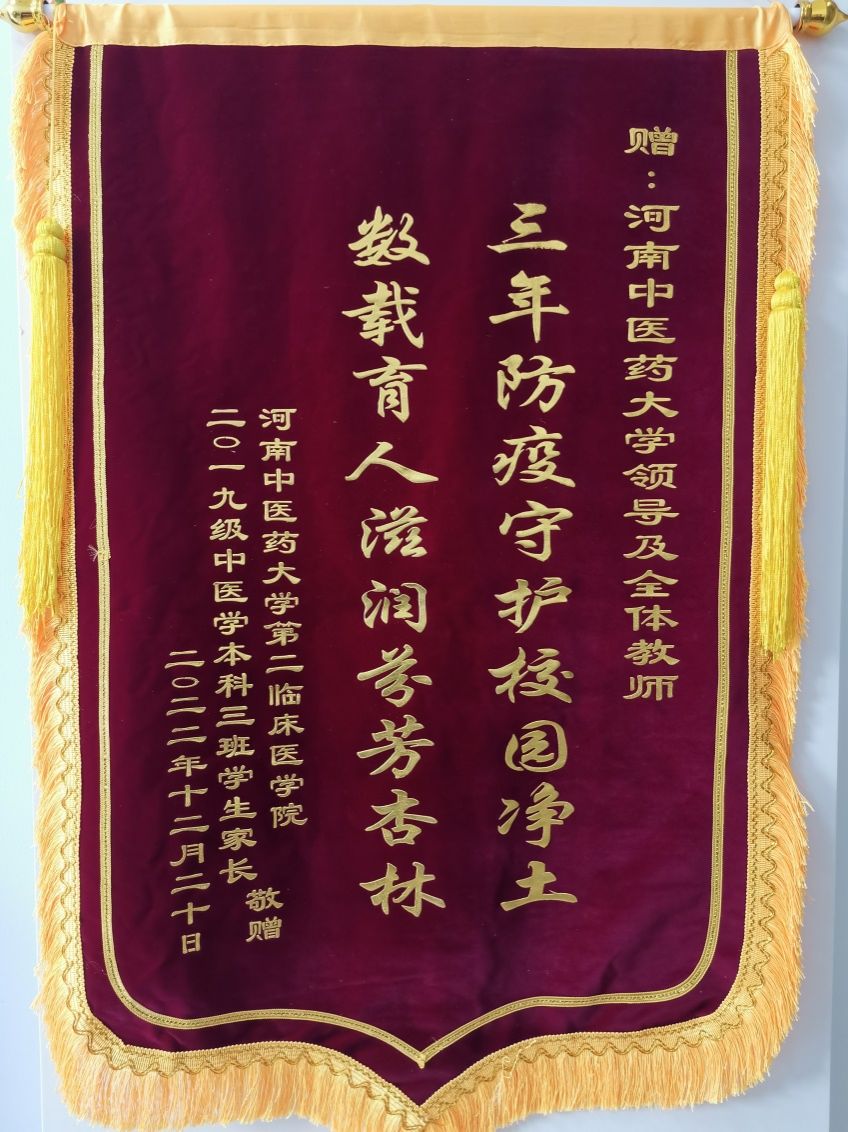 赠：河南中医药大学领导及全体教师
三年防疫守护校园净土
数载育人滋润芬芳杏林
河南中医药大学第二临床医学院
二〇一九级中医学本科三班学生家长
敬赠
二〇二二年十二月二十日